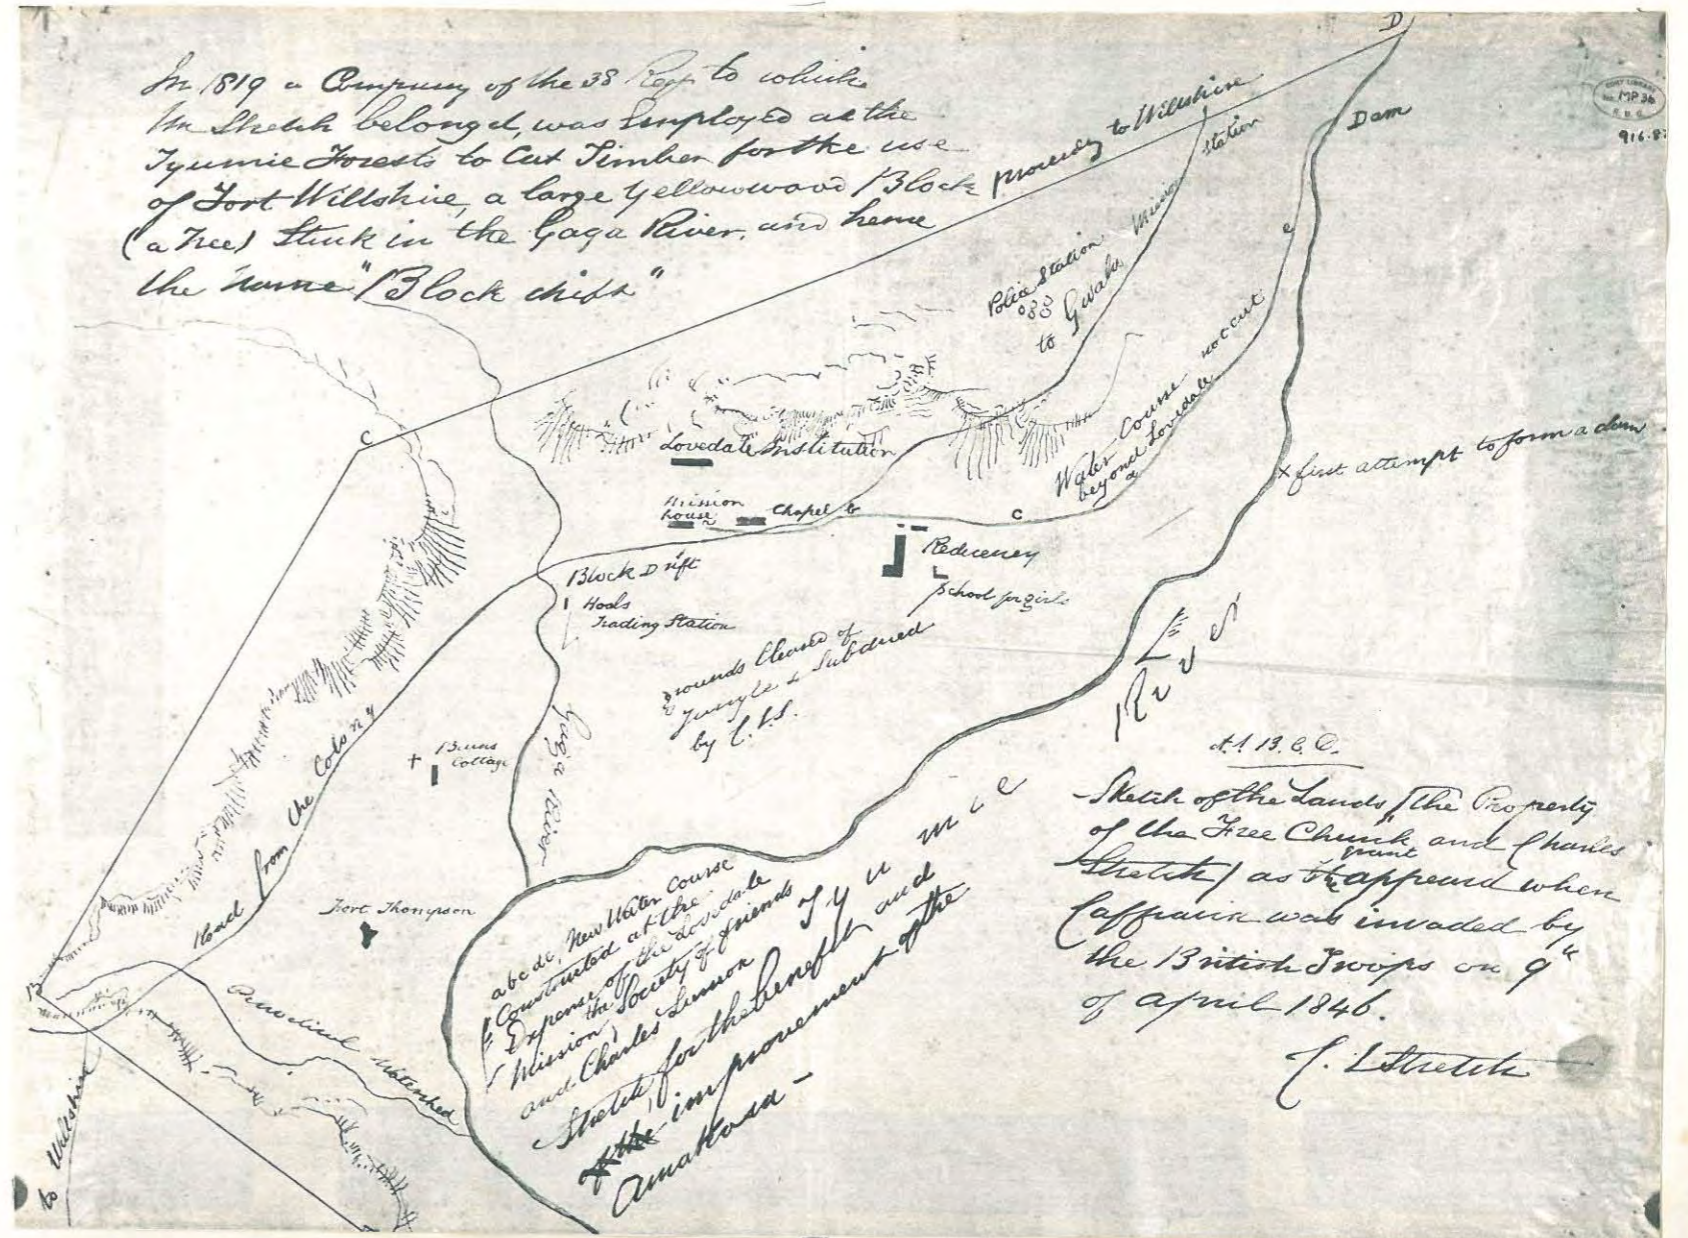 In 1819 a Company of the 38 Regt to which
Mr Stretch belonged, was Employed at the
Tyumie Forests to Cut Timber for the use
of Fort Willshire, a large Yellowwood Block
(a Tree) Stuck in the Gaga River, and hence
the name "Block drift"
D
Dam
FORT LIBRARY
MP 36
916.8
to Willshire
Mission Station
Police Station
to Gwali
e
Water Course not cut
beyond Lovedale
d
x first attempt to form a dam
C
Lovedale Institution
Mission
house
a
Chapel
b
c
Block Drift
Residency
School for girls
Hoods
Trading Station
Grounds Cleared of
Jungle & Subdued
by C.L.S.
Gaga River
+
Burns
Cottage
Road from the Colony
Fort Thompson
B
to Willshire
Watershed
River
Tyumie
a b c d e, New Water Course
Constructed at the
Expense of the Lovedale
Mission, the Society of friends
and Charles Lennox
Stretch, for the benefit and
of the improvement of the
Amakosa -
A. B. C. D.
Sketch of the Lands (The Property
of the Free Church, and Charles
Stretch) as grant appeared when
Caffraria was invaded by
the British Troops on 9"
of April 1846.
C. L Stretch